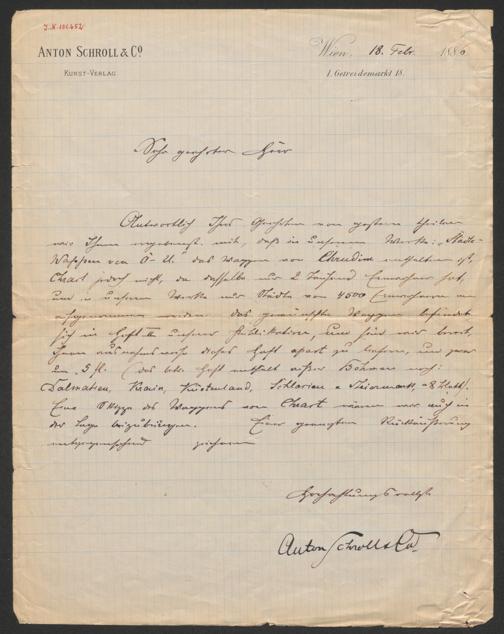 J.N. 106452
ANTON SCHROLL & Cº
KUNST-VERLAG
Wien, 18. Febr. 1886
I. Getreidemarkt 18.
Sehr geehrter Herr
Antwortlich Ihres Geehrten von gestern theilen
wir Ihnen ergebenst mit, daß in unserem Werke: „Städte-
Wappen von Ö-U." das Wappen von Chrudim enthalten ist,
jedoch nicht, da dasselbe nur 2 Tausend Einwohner hat,
und in unserem Werke nur Städte von 4500 Einwohnern an
aufgenommen werden. Das gewünschte Wappen befindet
sich in Heft II unserer Publikation, und sind wir bereit,
Ihnen ausnahmsweise dieses Heft apart zu liefern, und zwar
um 5 fl. (das betr. Heft enthält außer Böhmen noch:
Dalmatien, Krain, Küstenland, Schlesien u Steiermark, 8 Blatt).
Eine Skizze des Wappens von wären wir auch in
der Lage beizubringen. Einer geneigten Rückäußerung
entgegensehend zeichnen
Hochachtungsvollst
Anton Schroll & Co.